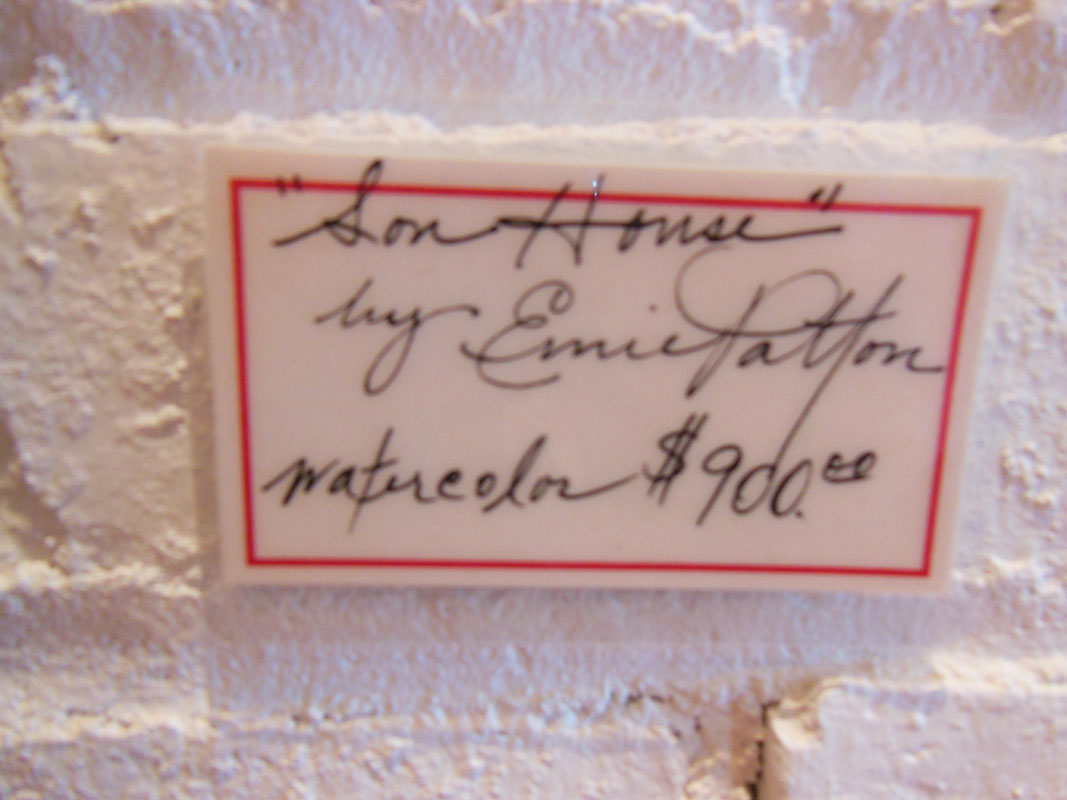 "Son House"
by Ernie Patton
watercolor $900.00